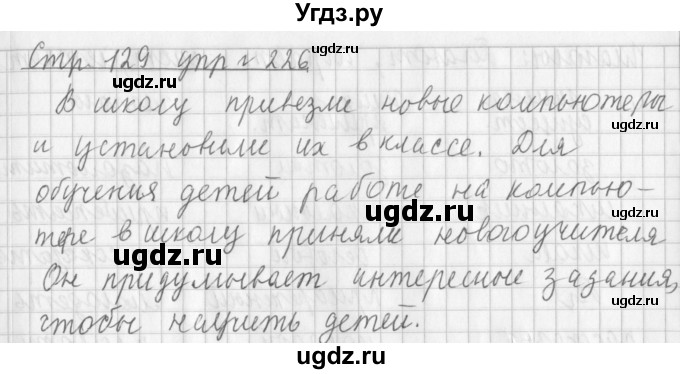 Угдз.ру
Стр. 129 упр № 226
ugdz.ru
ugdz.ru
В школу привезли новые компьютеры
ugdz.ru
и установили их в классе. Для
ugdz.ru
обучения детей работе на компью-
ugdz.ru
тере в школу приняли нового учителя
ugdz.ru
Он придумывает интересные зазания,
ugdz.ru
чтобы научить детей.
ugdz.ru
ugdz.ru